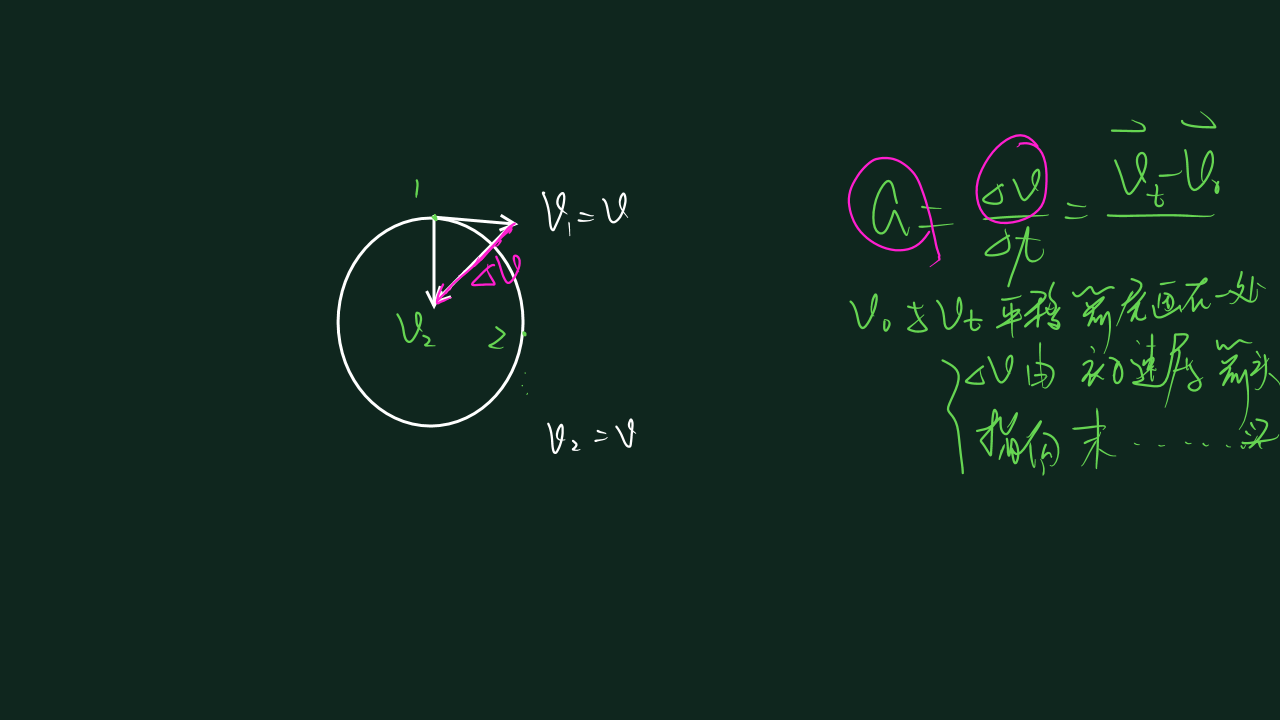 1
V₁=V
ΔV
V₂
2
V₂=V
a=Δv/Δt=(V⃗t-V⃗₀)/
V₀与Vt平移箭尾画在一处
ΔV由初速度箭头
指向末……头